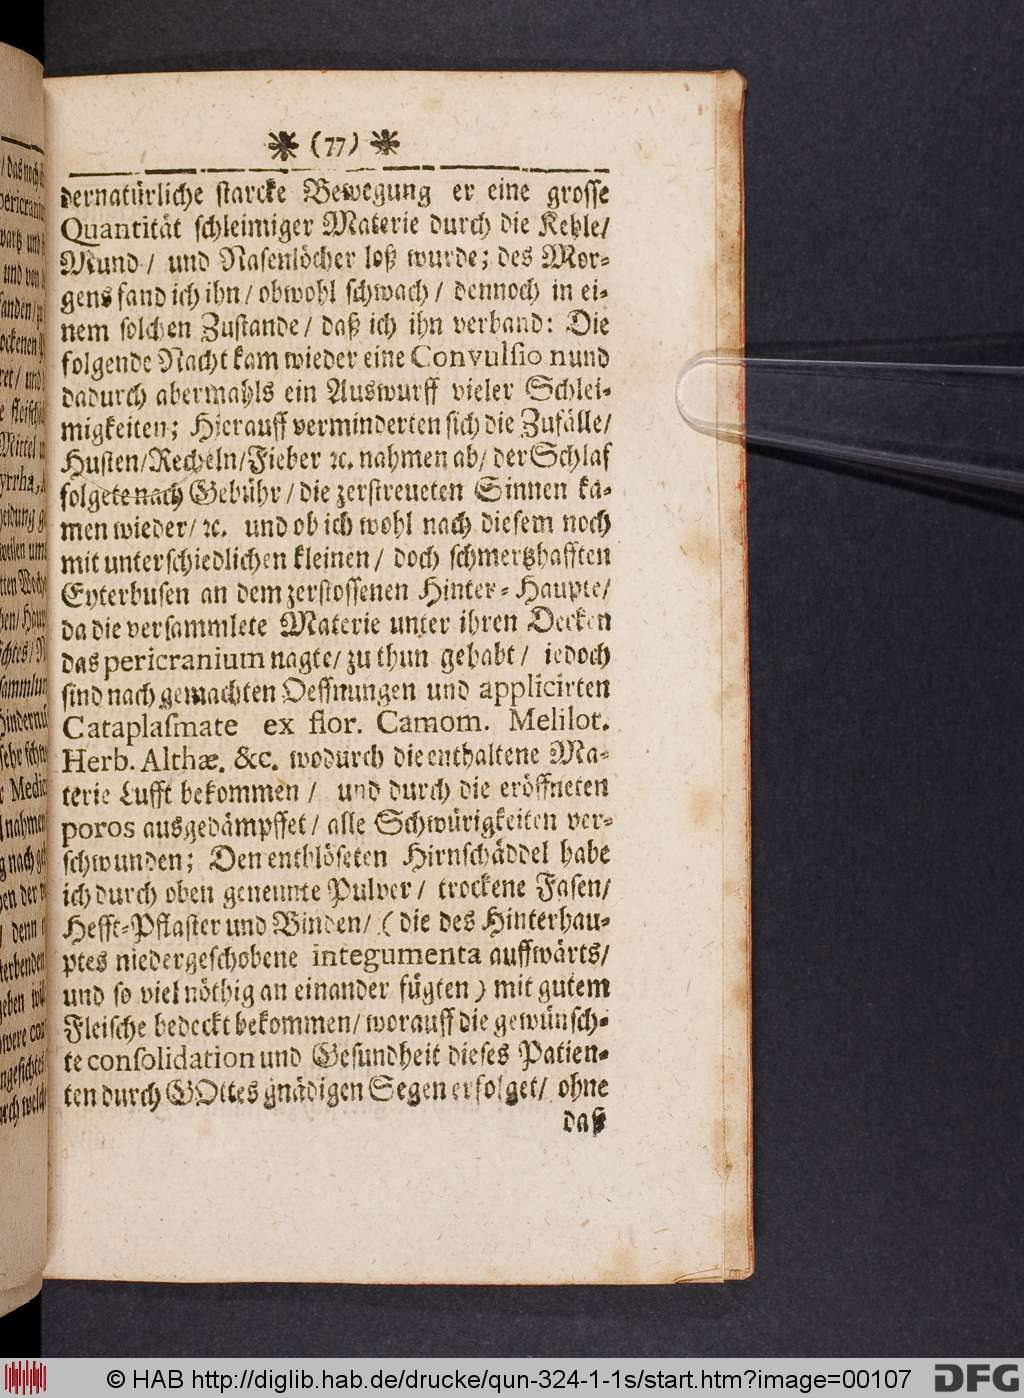 (77)
dernatürliche starcke Bewegung er eine grosse
Quantität schleimiger Materie durch die Kehle/
Mund/ und Nasenlöcher loß wurde; des Mor-
gens fand ich ihn/ obwohl schwach/ dennoch in ei-
nem solchen Zustande/ daß ich ihn verband: Die
folgende Nacht kam wieder eine Convulsio nund
dadurch abermahls ein Auswurff vieler Schlei-
migkeiten; Hierauff verminderten sich die Zufälle/
Husten/Recheln/Fieber ꝛc. nahmen ab/ der Schlaf
folgete nach Gebühr/ die zerstreueten Sinnen ka-
men wieder/ ꝛc. und ob ich wohl nach diesem noch
mit unterschiedlichen kleinen/ doch schmertzhafften
Eyterbusen an dem zerstossenen Hinter-Haupte/
da die versammlete Materie unter ihren Decken
das pericranium nagte/ zu thun gehabt/ iedoch
sind nach gemachten Oeffnungen und applicirten
Cataplasmate ex flor. Camom. Melilot.
Herb. Althæ. &c. wodurch die enthaltene Ma-
terie Lufft bekommen/ und durch die eröffneten
poros ausgedämpffet/ alle Schwürigkeiten ver-
schwunden; Den entblöseten Hirnschäddel habe
ich durch oben genennte Pulver/ trockene Fasen/
Hefft-Pflaster und Binden/ (die des Hinterhau-
ptes niedergeschobene integumenta auffwärts/
und so viel nöthig an einander fügten) mit gutem
Fleische bedeckt bekommen/ worauff die gewünsch-
te consolidation und Gesundheit dieses Patien-
ten durch GOttes gnädigen Segen erfolget/ ohne
daß
© HAB http://diglib.hab.de/drucke/qun-324-1-1s/start.htm?image=00107
DFG